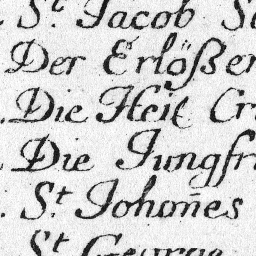 . St. Jacob St
Der Erlößer
. Die Heil Cr
. Die Jungfr
. St. Johom̃es
St George